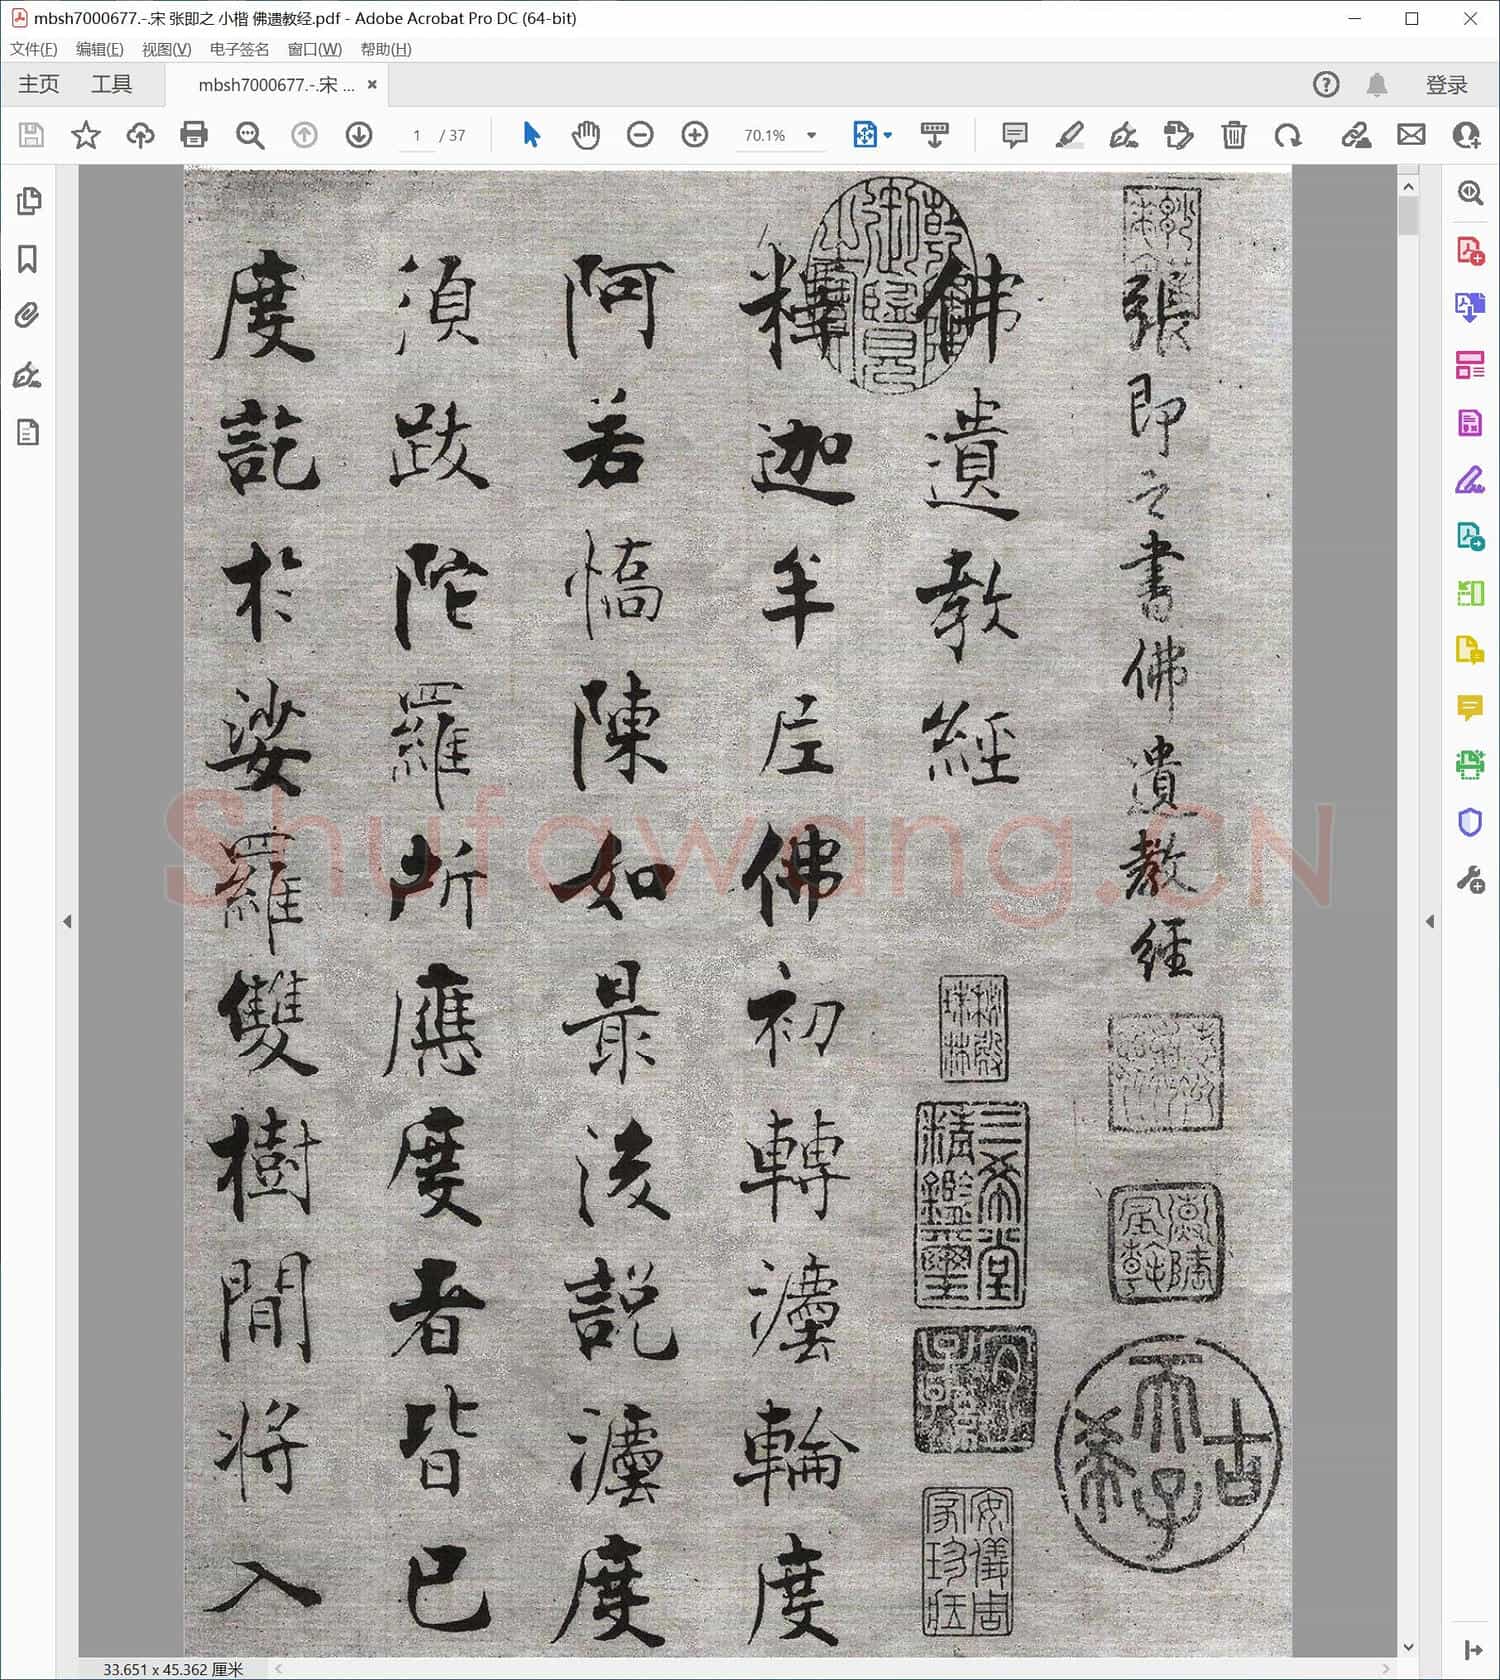 mbsh7000677.-.宋 张即之 小楷 佛遗教经.pdf - Adobe Acrobat Pro DC (64-bit)
文件(F) 编辑(E) 视图(V) 电子签名 窗口(W) 帮助(H)
主页 工具 mbsh7000677.-.宋 ... 登录
1 / 37 70.1%
張即之書佛遺教經
佛遺教經
釋迦牟尼佛初轉灋輪度
阿若憍陳如最後說灋度
須跋陀羅所應度者皆已
度訖於娑羅雙樹間將入
乾隆御覽之寶
秘殿珠林
三希堂精鑑璽
宜子孫
安儀周家珍藏
古希天子
Shufawang.CN
33.651 x 45.362 厘米